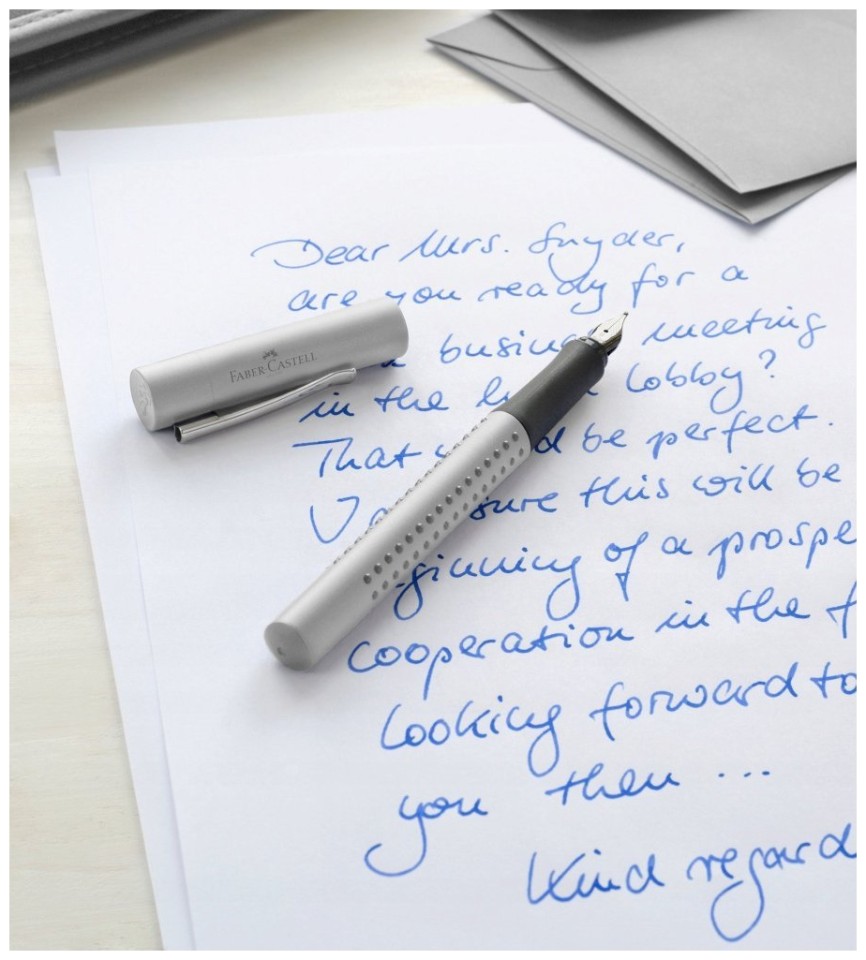 Dear Mrs. Snyder,
are you ready for a
busin meeting
in the lobby?
That be perfect.
sure this will be
ginning of a prospe
cooperation in the f
looking forward to
you then ...
Kind regard
FABER-CASTELL